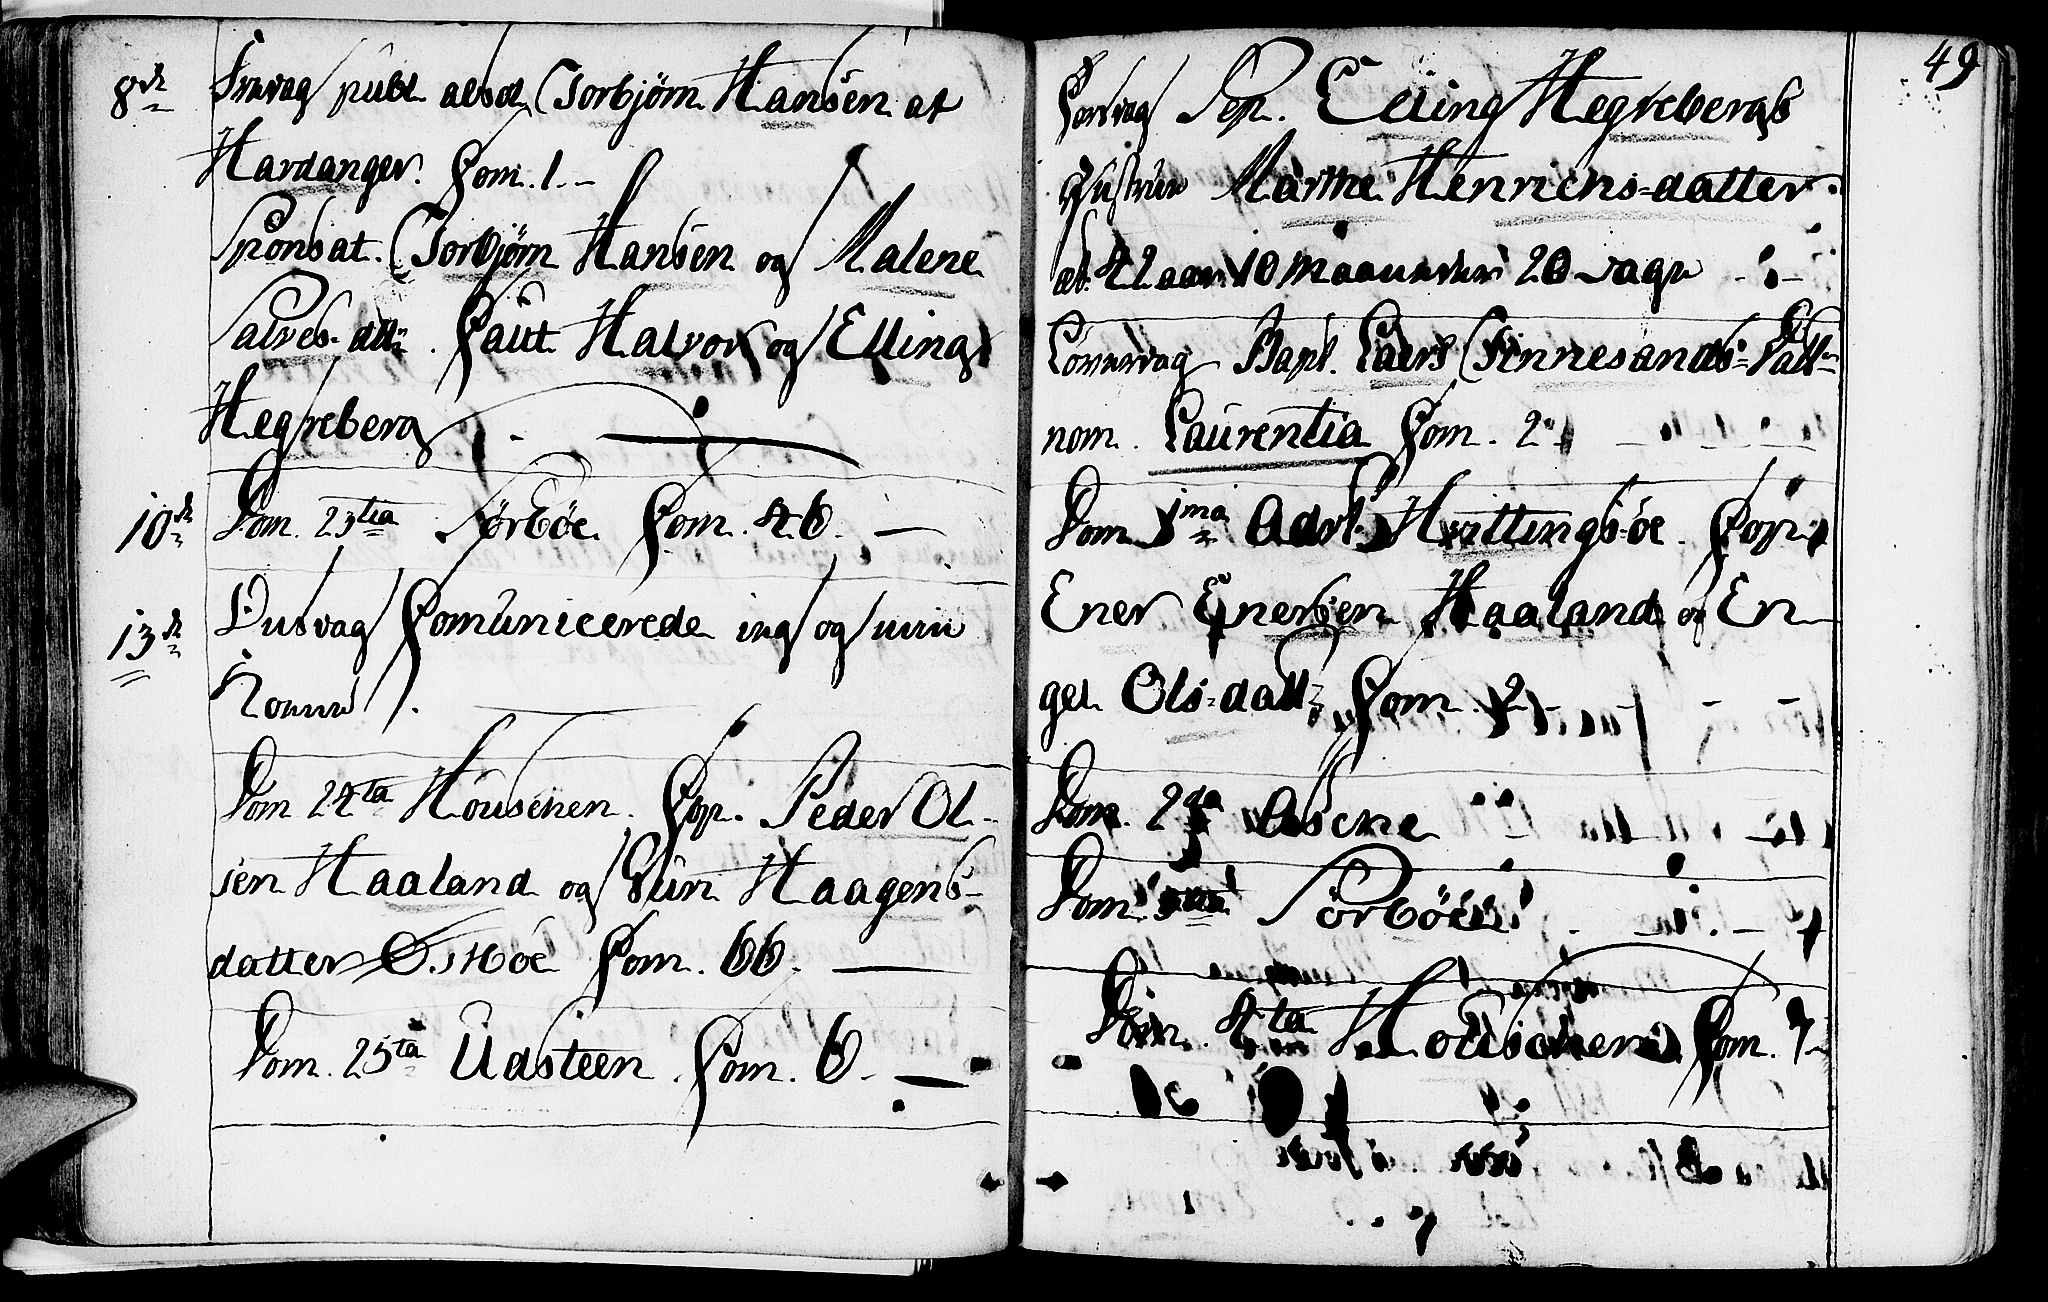 8de Fredag publ. absol. Torbjørn Hansen at
Hardanger. Com. 1. –
Sponsat. Torbjørn Hansen og Malene
Salves-datr. Caut. Halvor og Elling
Hegreberg
10de Dom. 23tia Sørböe. Com. 46. —
13de Onsdag Comunicerede jeg og min
Konne.
Dom 24ta Househen. Cop. Peder Ol-
sen Haaland og Guri Haagens-
datter Östböe Com. 66. —
Dom. 25ta Udsteen. Com. 6. —
49
Torsdag Sep. Elling Hegrebergs
Hustrue Marthe Henrichs-datter.
æt. 42 aar 10 maaneder 20 dage
Löverdag Bapt. Laers Finnesands Datr
nom. Laurentia Com. 2
Dom 1ma Advt. Hvittingsöe. Cop.
Ener Enersen Haaland og En-
gel Ols-datr. Com. 2
Dom. 2da Asche
Dom 3tia Sörböe
Dom. 4ta Houschen Com. 7